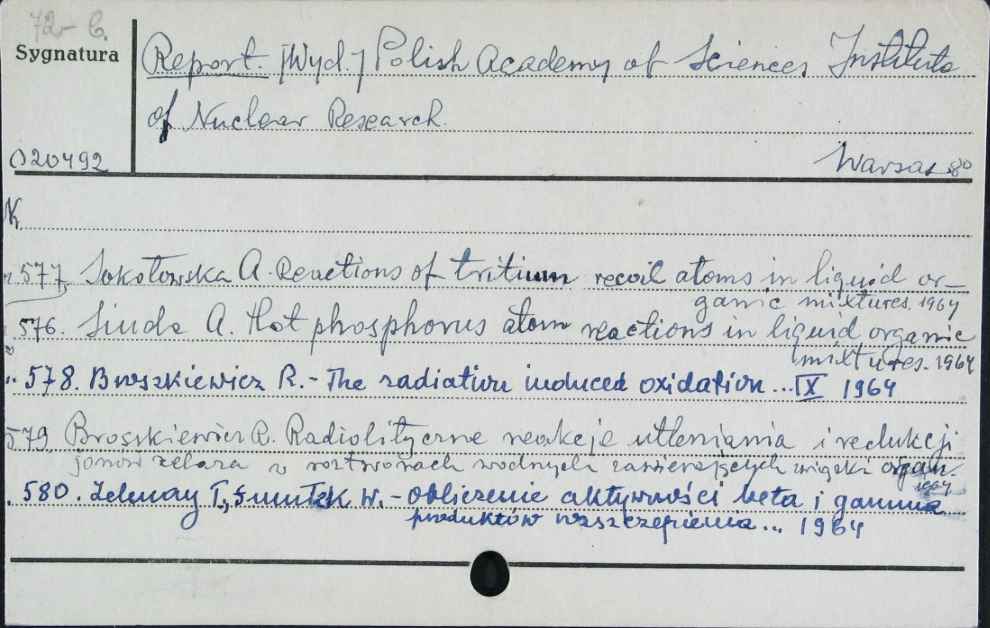 72-C.
Sygnatura
Report. [Wyd.] Polish Academy of Sciences Institute
of Nuclear Research.
020492
Warsaw 80
K
577. Sokołowska A. Reactions of tritium recoil atoms in liquid or-
ganic mixtures. 1964
576. Siuda A. Hot phosphorus atom reactions in liquid organic
mixtures. 1964
578. Broszkiewicz R. - The radiation induced oxidation...IX 1964
579 Broszkiewicz R. Radiolityczne reakcje utleniania i redukcji
jonów żelaza w roztworach wodnych zawierających związki organ.
1964
580. Zelmay T., Smułek W. - Obliczenie aktywności beta i gamma
produktów rozszczepienia... 1964